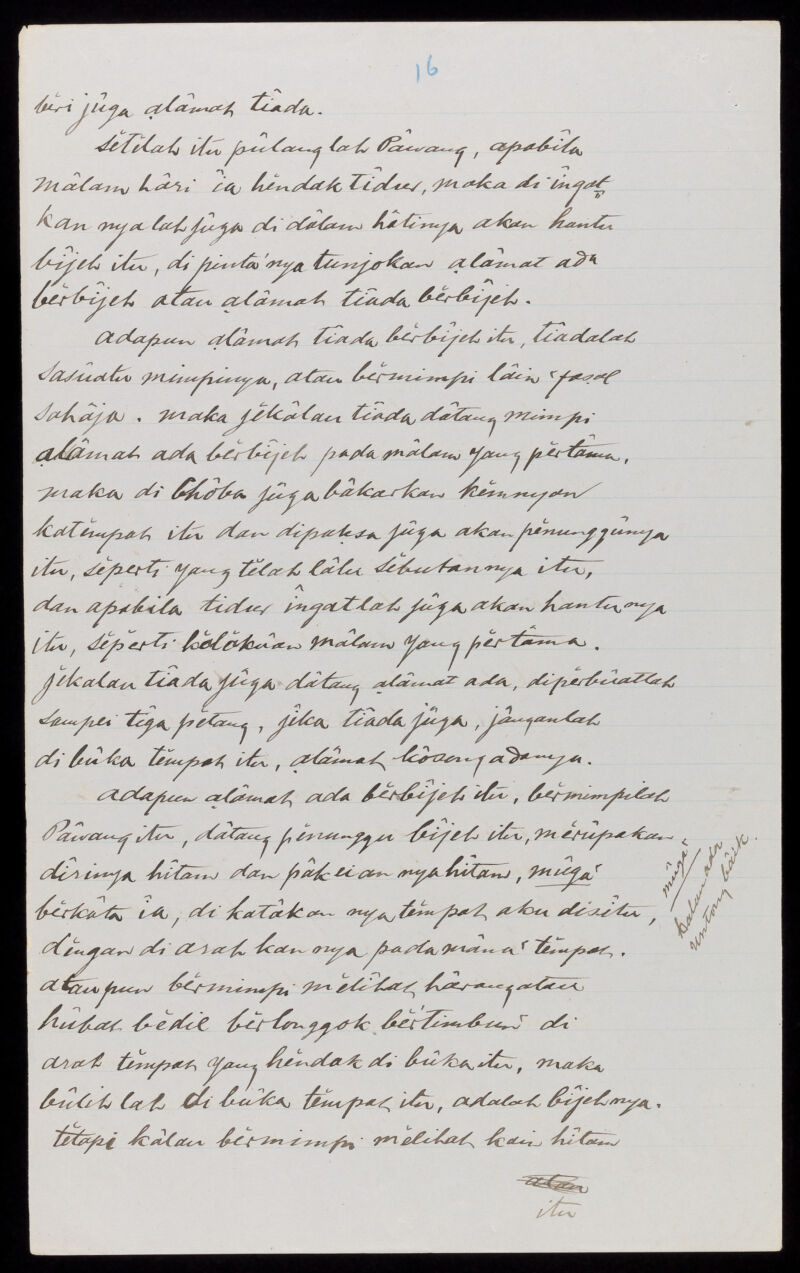 16
bĕri jûga ạlâmat tîada.
sĕtĕlah itu pûlang lah Pâwang, apabîla
mâlam hâri îa hĕndak tîdur, maka di îngat
kan nya lah jûga di dâlam hâtinya akan hantu
bîjeh itu, di pinta' nya tunjokan ạlâmat ada
bĕrbîjeh atau ạlâmat tîada bĕrbîjeh.
adapun ạlâmat tîada bĕrbîjeh itu, tîadalah
sasûatu mimpinya, atau bĕrmimpi lâin ² fasal
sahâja. maka jĕkâlau tîada dâtang mimpi
ạlâmat ada bĕrbîjeh pada mâlam yang pĕrtâma,
maka di chôba jûga bâkarkan kĕmnyan
katĕmpat itu dan dipaksa jûga akan pĕnunggûnya
itu, sĕpĕrti yang tĕlah lâlu sĕbutan nya itu,
dan apabila tidur îngatlah jûga akan hantu nya
itu, sĕpĕrti kĕlâkûan mâlam yang pĕrtâma.
jĕkalau tîada jûga dâtang ạlâmat ada, dipĕrbûatlah
sampei tîga pĕtang, jîka tîada jûga, jânganlah
di bûka tĕmpat itu, ạlâmat kôsong adanya.
adapun ạlâmat ada bĕrbîjeh itu, bĕrmimpilah
Pâwang itu, dâtang pĕnunggu bîjeh itu, mĕrûpakan
dîrinya hîtam dan pâkeian nya hîtam, mûga²
bĕrkâta îa, di katâkan nya tĕmpat aku disîtu,
dĕngan di arah kan nya pada mâna ² tĕmpat.
atau pun bĕrmimpi mĕlîhat hârang atau
hûbat bĕdil bĕrlonggok ² bĕrtimbun ² di
arah tĕmpat yang hĕndak di bûka itu, maka
bûlih lah di bûka tĕmpat itu, adalah bîjeh nya.
tĕtapi kâlau bĕrmimpi mĕlihat kain hîtam
atau
itu
mûga²
kalau ada
untong bâik.